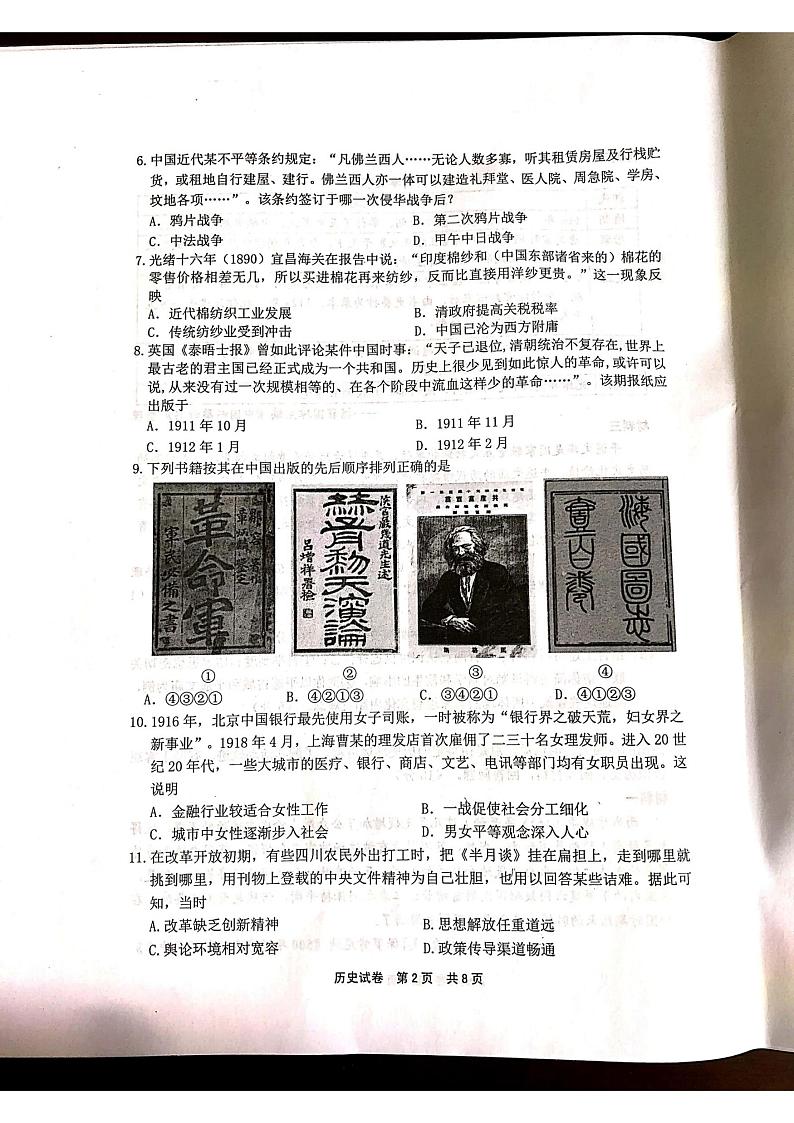 6. 中国近代某不平等条约规定：“凡佛兰西人……无论人数多寡，听其租赁房屋及行栈贮
货，或租地自行建屋、建行。佛兰西人亦一体可以建造礼拜堂、医人院、周急院、学房、
坟地各项……”。该条约签订于哪一次侵华战争后？
A. 鸦片战争 B. 第二次鸦片战争
C. 中法战争 D. 甲午中日战争
7. 光绪十六年（1890）宜昌海关在报告中说：“印度棉纱和（中国东部诸省来的）棉花的
零售价格相差无几，所以买进棉花再来纺纱，反而比直接用洋纱更贵。”这一现象反
映
A. 近代棉纺织工业发展 B. 清政府提高关税税率
C. 传统纺纱业受到冲击 D. 中国已沦为西方附庸
8. 英国《泰晤士报》曾如此评论某件中国时事：“天子已退位，清朝统治不复存在，世界上
最古老的君主国已经正式成为一个共和国。历史上很少见到如此惊人的革命，或许可以
说，从来没有过一次规模相等的、在各个阶段中流血这样少的革命……”。该期报纸应
出版于
A. 1911 年 10 月 B. 1911 年 11 月
C. 1912 年 1 月 D. 1912 年 2 月
9. 下列书籍按其在中国出版的先后顺序排列正确的是
革命軍
軍民必備之書
侯官嚴幾道先生述
天演論
呂增祥署檢
海國圖志
① ② ③ ④
A. ④③②① B. ④②①③ C. ③④②① D. ④①②③
10. 1916 年，北京中国银行最先使用女子司账，一时被称为“银行界之破天荒，妇女界之
新事业”。1918 年 4 月，上海曹某的理发店首次雇佣了二三十名女理发师。进入 20 世
纪 20 年代，一些大城市的医疗、银行、商店、文艺、电讯等部门均有女职员出现。这
说明
A. 金融行业较适合女性工作 B. 一战促使社会分工细化
C. 城市中女性逐渐步入社会 D. 男女平等观念深入人心
11. 在改革开放初期，有些四川农民外出打工时，把《半月谈》挂在扁担上，走到哪里就
挑到哪里，用刊物上登载的中央文件精神为自己壮胆，也用以回答某些诘难。据此可
知，当时
A. 改革缺乏创新精神 B. 思想解放任重道远
C. 舆论环境相对宽容 D. 政策传导渠道畅通
历史试卷 第 2 页 共 8 页